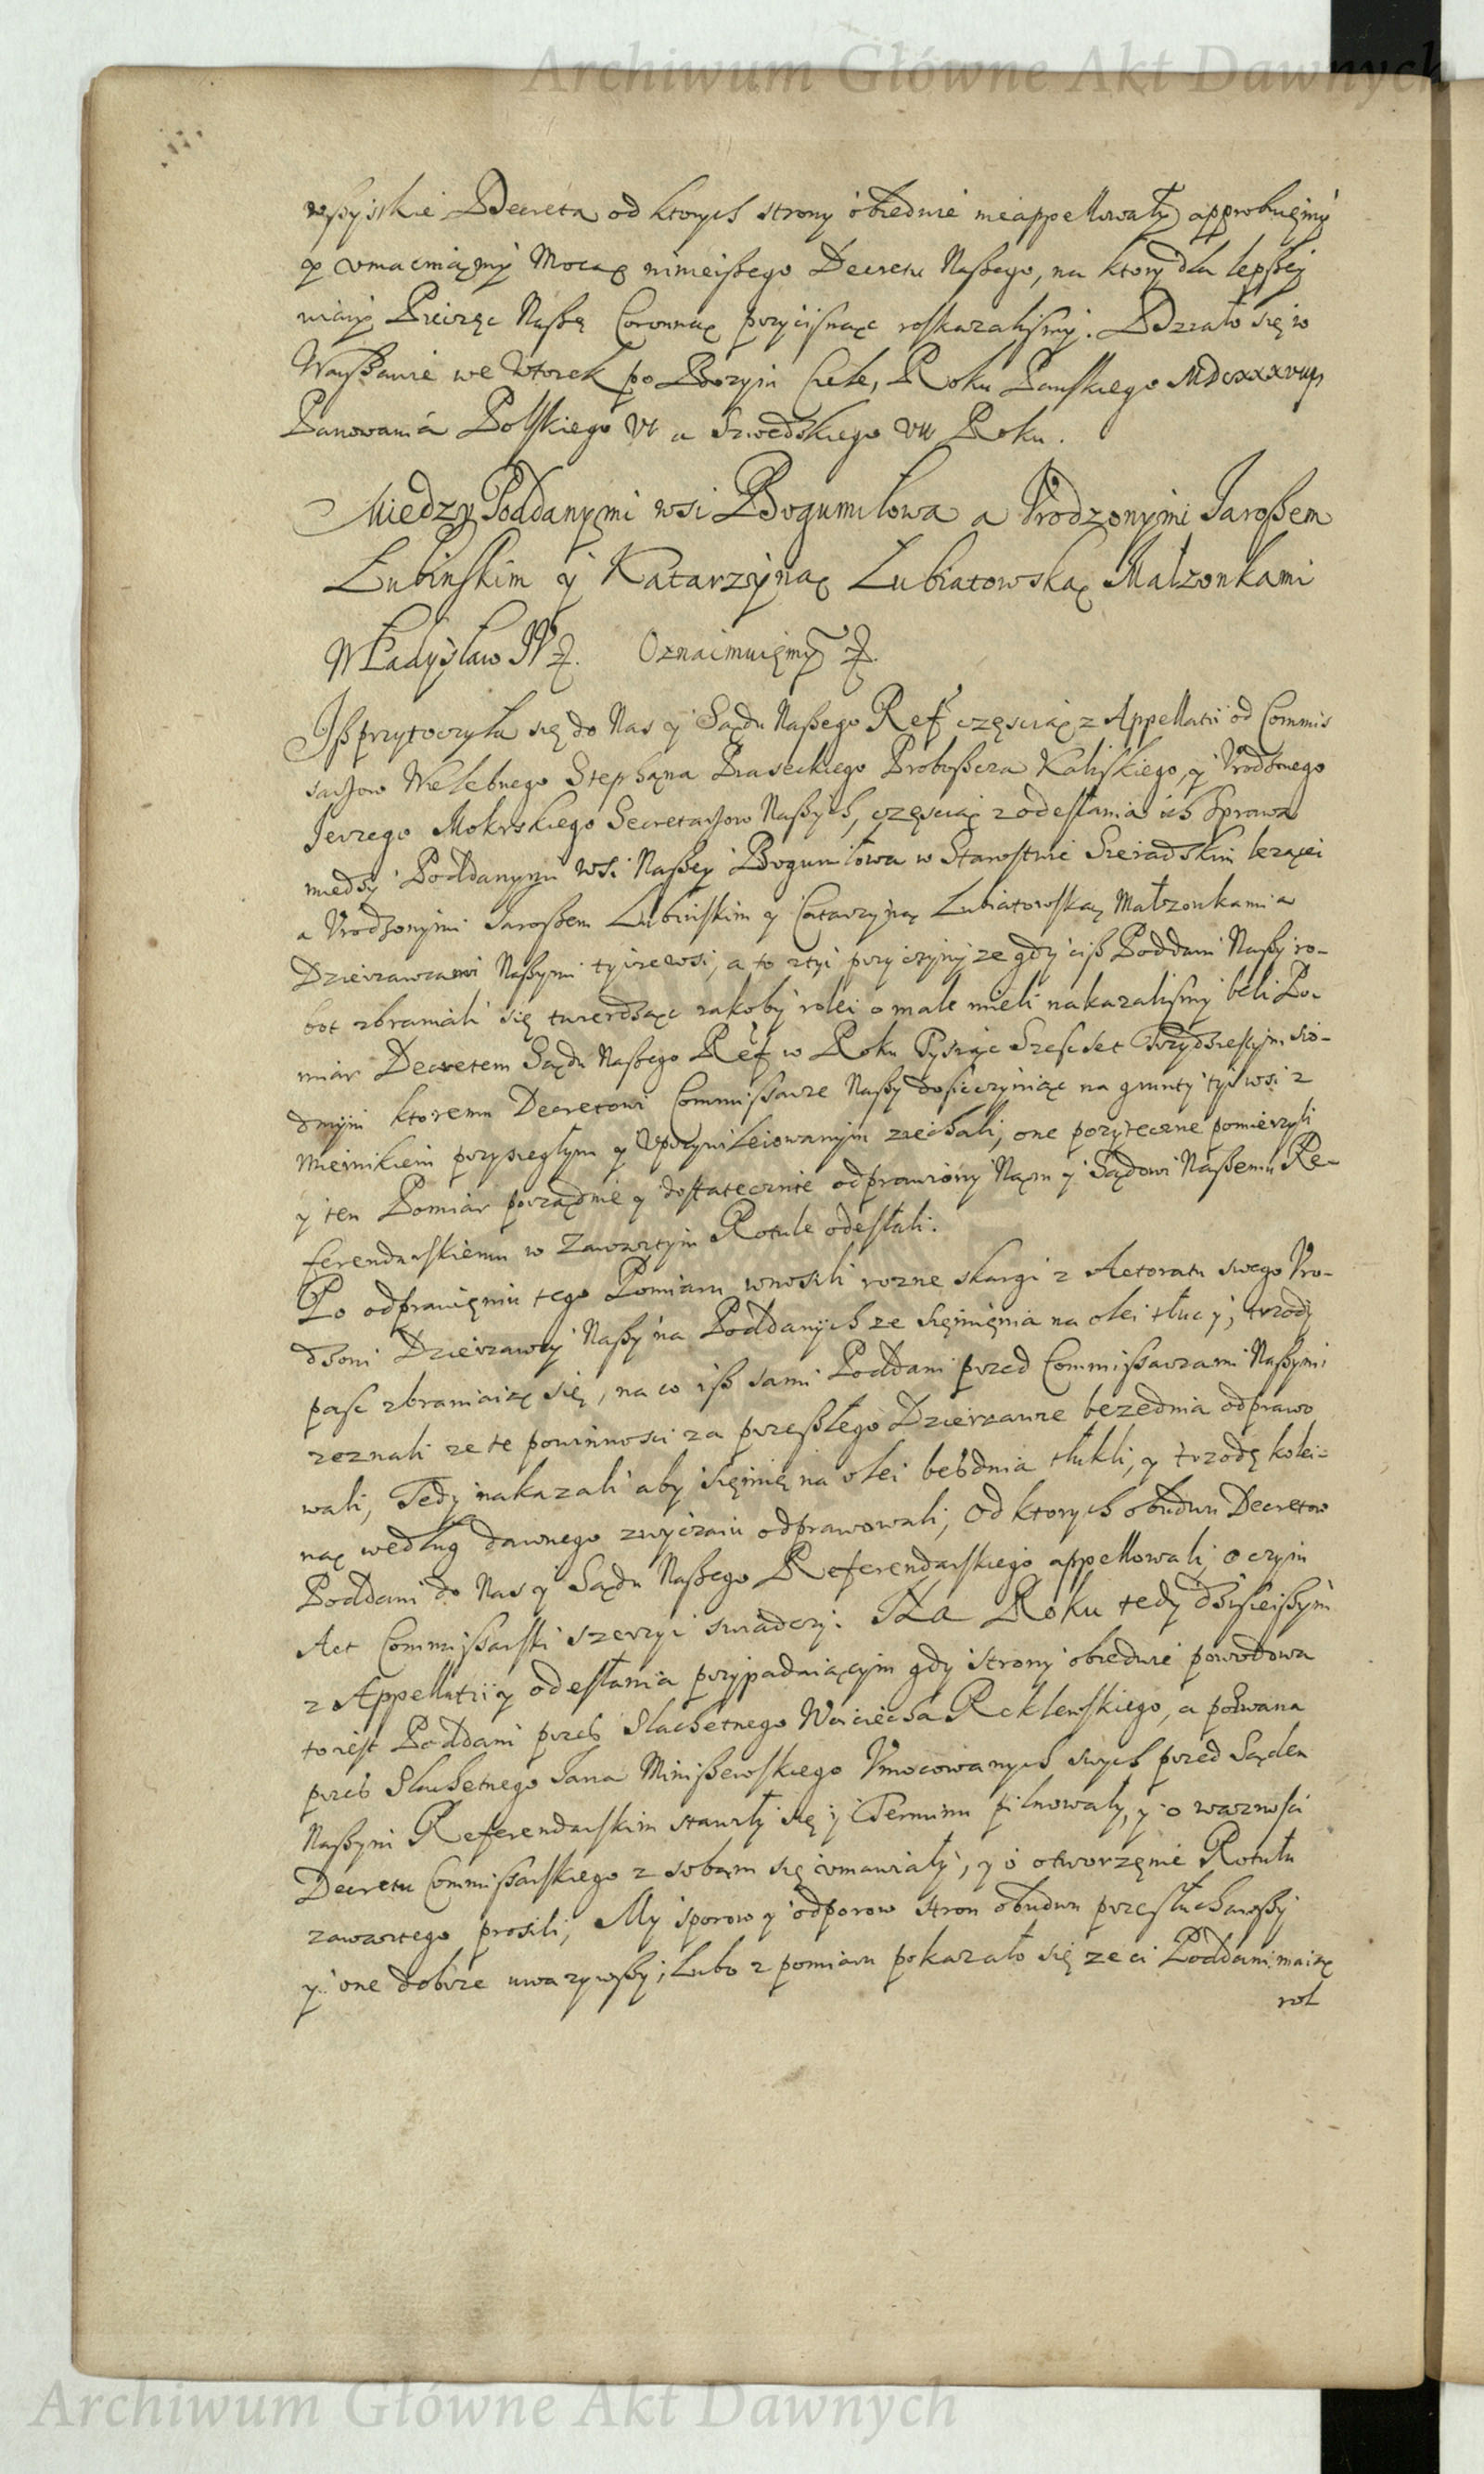 Archiwum Główne Akt Dawnych
wßyskie Decreta od ktorych strony obiedwie nieappellowały approbuięmy
y vmacniaęmy Mocą ninieißego Decretu Naßego, na ktory dla lepßey
wiary Pieczęc Naßę Coronną przycisnąc roskazalismy. Działo się w
Warßawie we Wtorek po Bozym Ciele, Roku Panskiego MDCXXXVIII
Panowania Polskiego VI a Szwedzkiego VII Roku.
Miedzy Poddanymi wsi Bogumiłowa a Vrodzonymi Iaroßem
Lubinskim y Katarzyną Lubiatowską Małzonkami
Władysław IV &. Oznaimuięmy &.
Iß przytoczyła się do Nas y Sądu Naßego Ref częscią z Appellatii od Commis
sarzow Wielebnego Stephana Piaseckiego Proboßcza Kaliskiego, y Vrodzonego
Ierzego Mokrskiego Secretarzow Naßych, częscią z odesłania ich Sprawa
miedzy Poddanymi wsi Naßey Bogumiłowa w Starostwie Sieradzkim lezącei
a Vrodzonymi Iaroßem Lubinskim y Catarzyną Lubiatowską Małzonkami a
Dzierzawcami Naßymi tyize wsi, a to z tyi przyczyny ze gdy ciß Poddani Naßy ro-
bot zbraniali się twierdząc zakoby rolei o male mieli nakazalismy beli Po-
miar Decretem Sądu Naßego Ref w Roku Tysiąc Szescset Trzydziestym sio-
dmym ktoremu Decretowi Commissarze Naßy dosic czyniąc na grunty tyi wsi z
Miernikiem przysięgłym y Vprzywileiowanym ziechali, one pozyteczne pomierzyli
y ten Pomiar porządnie y dostatecznie odprawiony Nąm y Sądowi Naßemu Re-
ferendarskiemu w Zawartym Rotule odesłali.
Po odprawięniu tego Pomiaru wnosili rozne skargi z Actoratu swego Vro-
dzoni Dzierzawcy Naßy na Poddanych ze sięmięnia na olei tłuc y, trzody
pasc zbraniaią się, na co iß sami Poddani przed Commißarzami Naßymi
zeznali ze te powinnosci za przeßłego Dzierzawce bezednia odprawo
wali, Tedy nakazali aby sięmię na olei bezdnia tłukli, y trzodę kolei-
ną według dawnego zwyczaiu odprawowali, Od ktorych obudwu Decretow
Poddani do Nas y Sądu Naßego Referendarskiego appellowali, o czym
Act Commißarski szerzyi swiadczy. Na Roku tedy dzisieißym
z Appellatii y odesłania przypadaiącym gdy strony obiedwie powodowa
to iest Poddani przez Slachetnego Woiciecha Reklewskiego, a pozwana
przez Slachetnego Iana Minißewskiego Vmocowanych swych przed Sądem
Naßym Referendarskim stawiły się y Terminu pilnowały, y o waznosci
Decretu Commißarskiego z sobąm się vmawiały, y o otworzęnie Rotułu
zawartego prosili, My sporow y odporow stron obudwu przesłuchawßy
y one dobrze uwazywßy, Lubo z pomiaru pokazało się ze ci Poddani maią
rol
Archiwum Główne Akt Dawnych